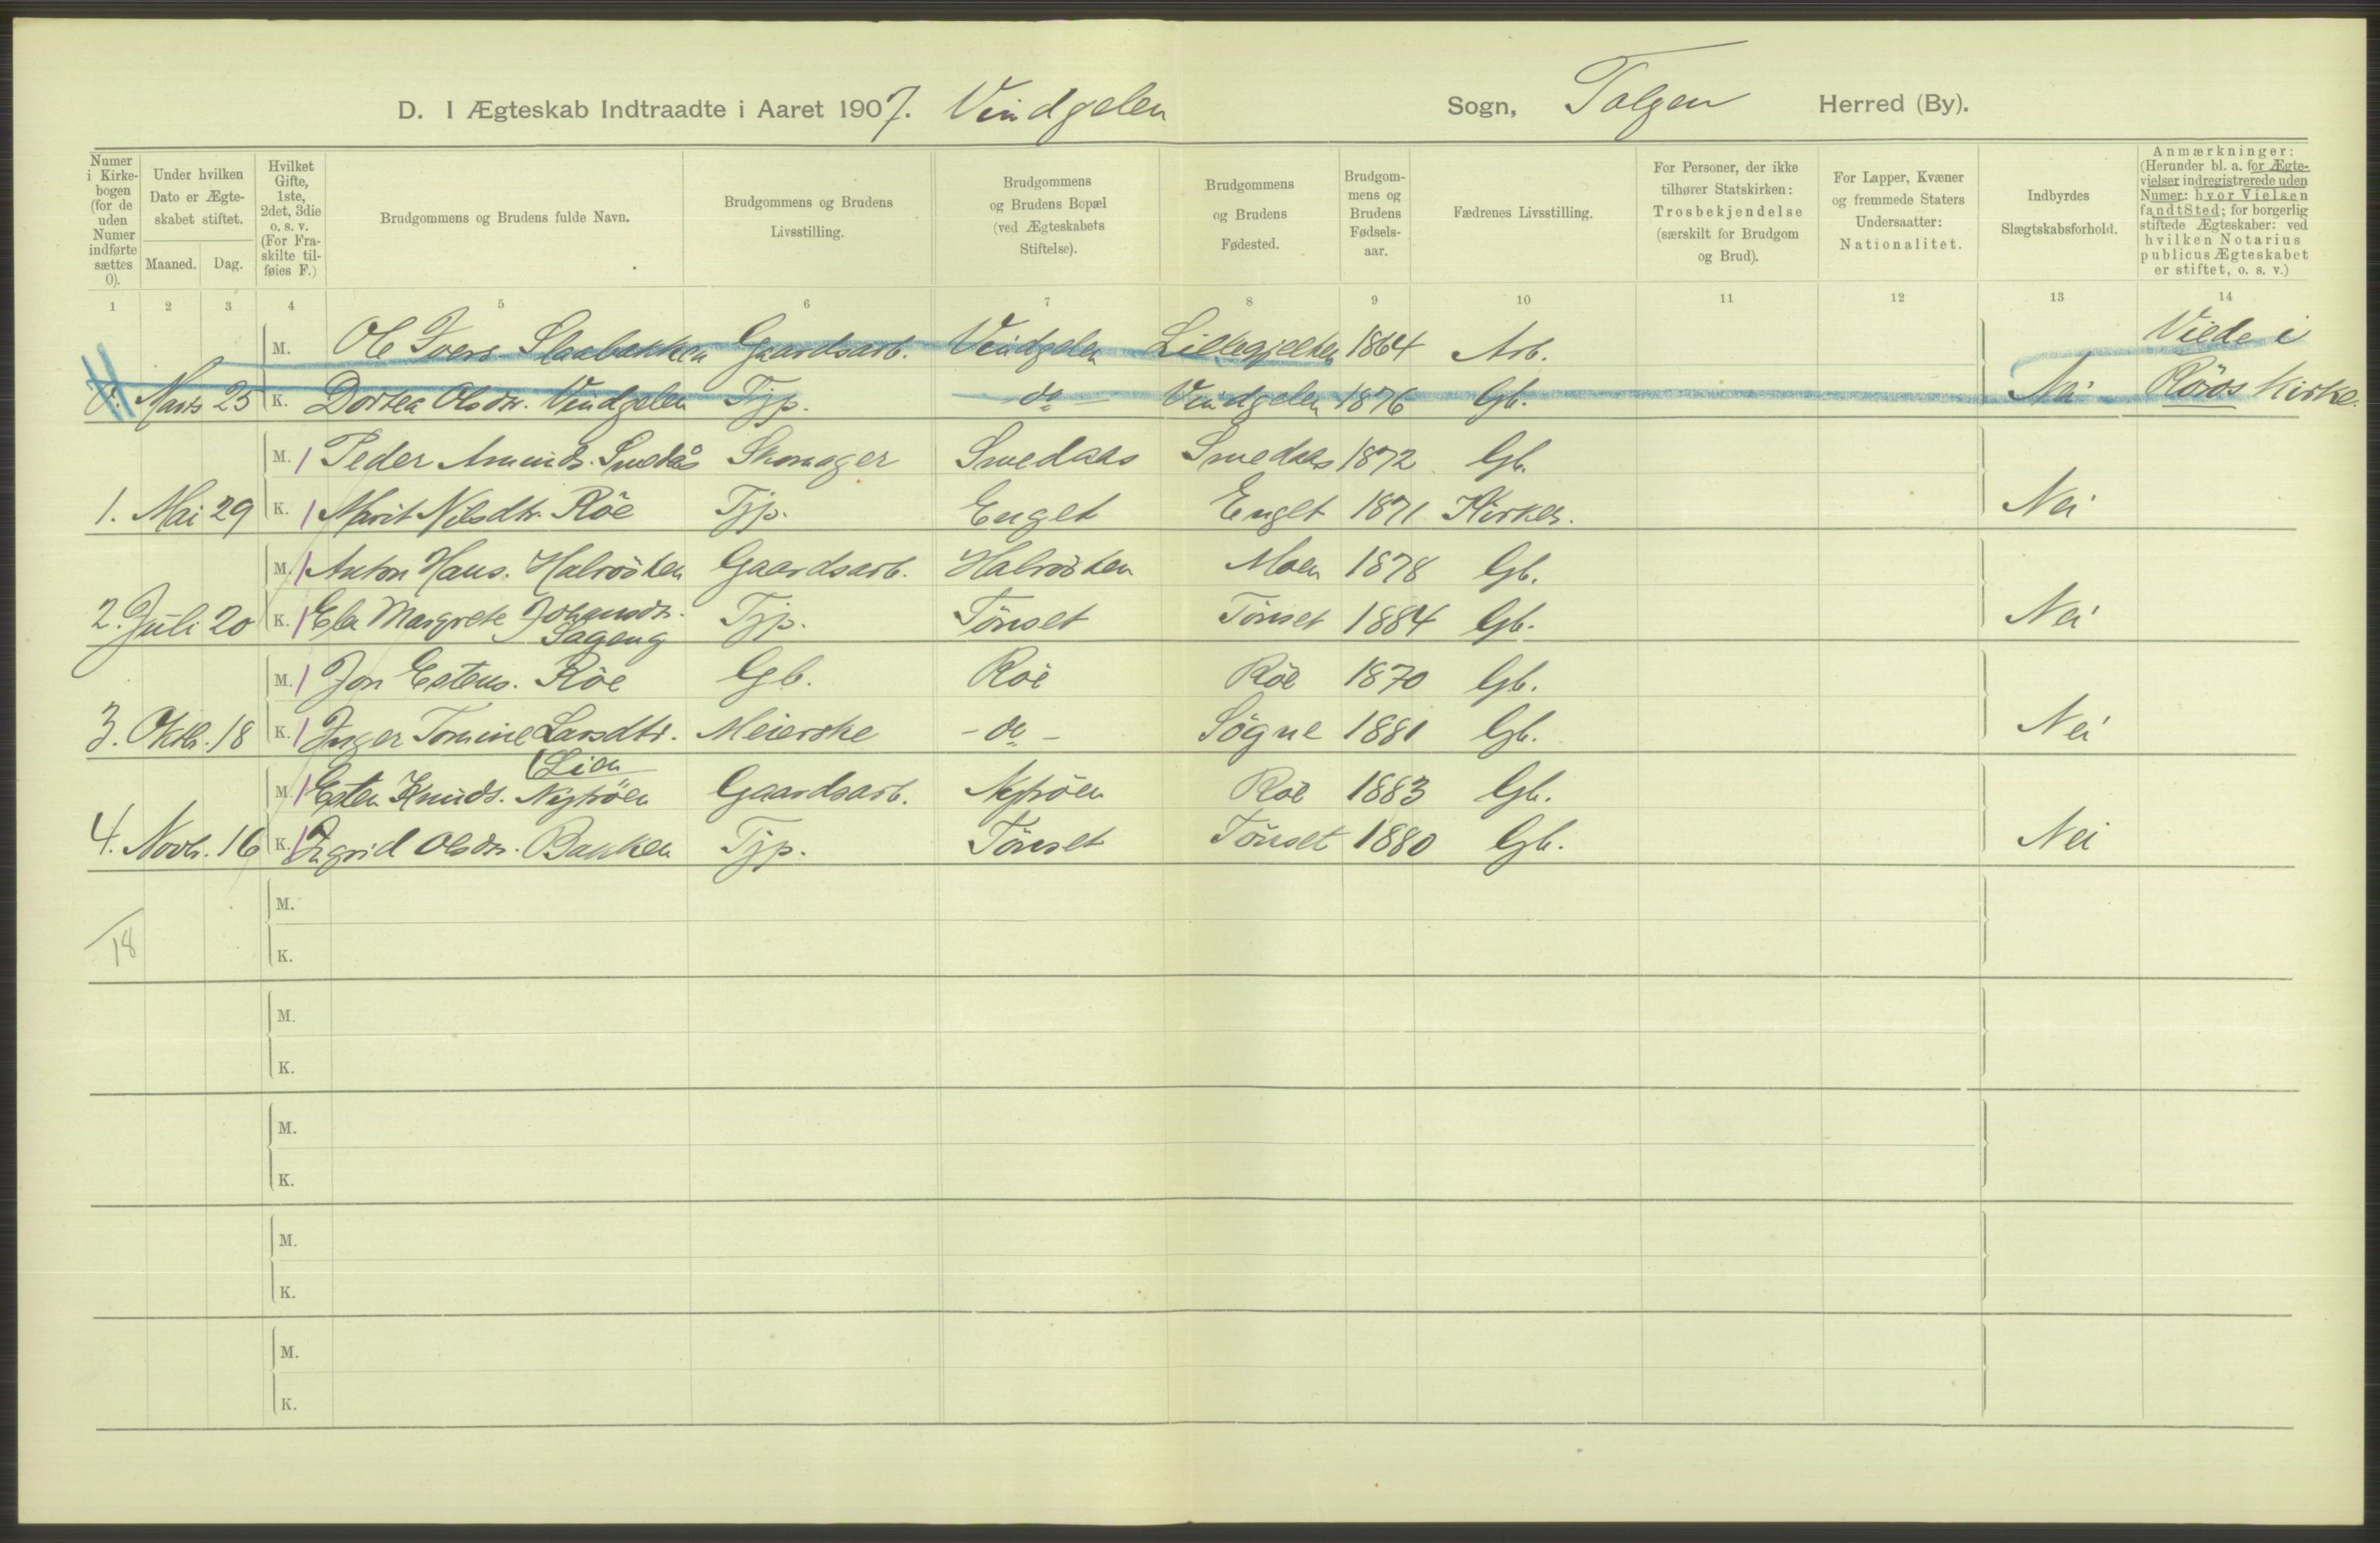 D. I Ægteskab Indtraadte i Aaret 1907. Vindgelen Sogn, Tolgen Herred (By).
Numer i Kirke-bogen (for de uden Numer indførte sættes 0).
Under hvilken Dato er Ægte-skabet stiftet.
Maaned. Dag.
Hvilket Gifte, 1ste, 2det, 3die o. s. v. (For Fra-skilte til-føies F.)
Brudgommens og Brudens fulde Navn.
Brudgommens og Brudens Livsstilling.
Brudgommens og Brudens Bopæl (ved Ægteskabets Stiftelse).
Brudgommens og Brudens Fødested.
Brudgom-mens og Brudens Fødsels-aar.
Fædrenes Livsstilling.
For Personer, der ikke tilhører Statskirken: Trosbekjendelse (særskilt for Brudgom og Brud).
For Lapper, Kvæner og fremmede Staters Undersaatter: Nationalitet.
Indbyrdes Slægtskabsforhold.
Anmærkninger: (Herunder bl. a. for Ægte-vielser indregistrerede uden Numer: hvor Vielsen fandt Sted; for borgerlig stiftede Ægteskaber: ved hvilken Notarius publicus Ægteskabet er stiftet, o. s. v.)
1 2 3 4 5 6 7 8 9 10 11 12 13 14
M. Ole Ivers. Slaabakken Gaardsarb. Vindgelen 1864 Arb. Viede i
0. Marts 25 K. Dortea Olsdtr. Vindgelen Tjp. - do - Vindgelen 1876 Gb. Nei Röros Kirke.
M. 1 Peder Amunds. Smedås Skomager Smedaas Smedaas 1872 Gb.
1. Mai 29 K. 1 Marit Nilsdtr. Röe Tjp. Enget Enget 1871 Kirkes. Nei
M. 1 Anton Hans. Halvrösten Gaardsarb. Moen 1878 Gb.
2. Juli 20 K. 1 Margrete Johansdtr. Tjp. Tönset Tönset 1884 Gb. Nei
Sageng
M. 1 Jon Estens. Röe Gb. Röe Röe 1870 Gb.
3. Oktb. 18 K. 1 Inger Tomine Larsdtr. Meierske - do - Sögne 1881 Gb. Nei
(Lien
M. 1 Esten Knuds. Nytröen Gaardsarb. Nytröen Röe 1883 Gb.
4. Novb. 16 K. 1 Ingrid Olsdtr. Bakken Tjp. Tönset Tönset 1880 Gb. Nei
M.
18
K.
M.
K.
M.
K.
M.
K.
M.
K.